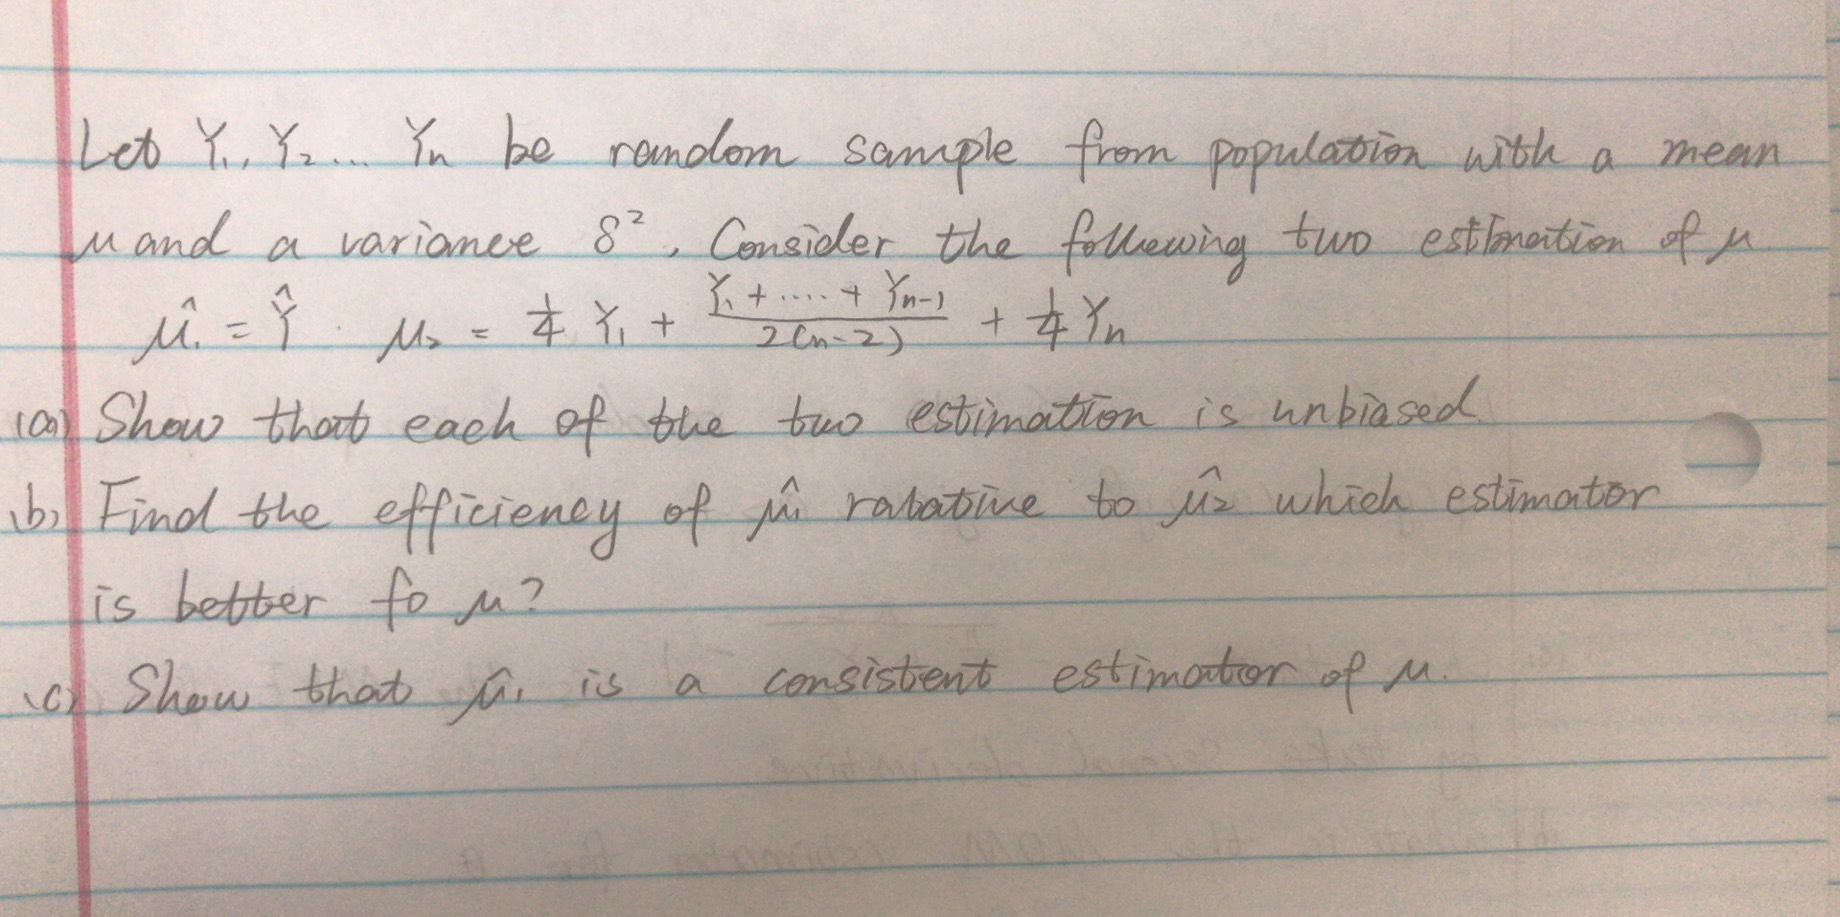 Let Y₁, Y₂ ... Yn be random sample from population with a mean
μ and a variance δ². Consider the following two estimation of μ
μ̂₁ = Ŷ. μ₂ = 1/4 Y₁ + (Y₁ + .... + Yn-1)/(2(n-2)) + 1/4 Yn
(a) Show that each of the two estimation is unbiased.
(b) Find the efficiency of μ̂₁ rabative to μ̂₂ which estimator
is better fo μ?
(c) Show that μ̂₁ is a consistent estimator of μ.